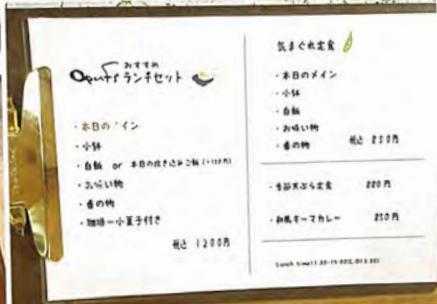 おすすめ
ランチセット
・本日の イン
・小鉢
・白飯 or 本日の炊き込みご飯 (+100円)
・お吸い物
・香の物
・珈琲ー小菓子付き
税込 1200円
気まぐれ定食
・本日のメイン
・小鉢
・白飯
・お吸い物
・香の物 税込 850円
・季節天ぷら定食 880円
・和風キーマカレー 850円
Lunch time